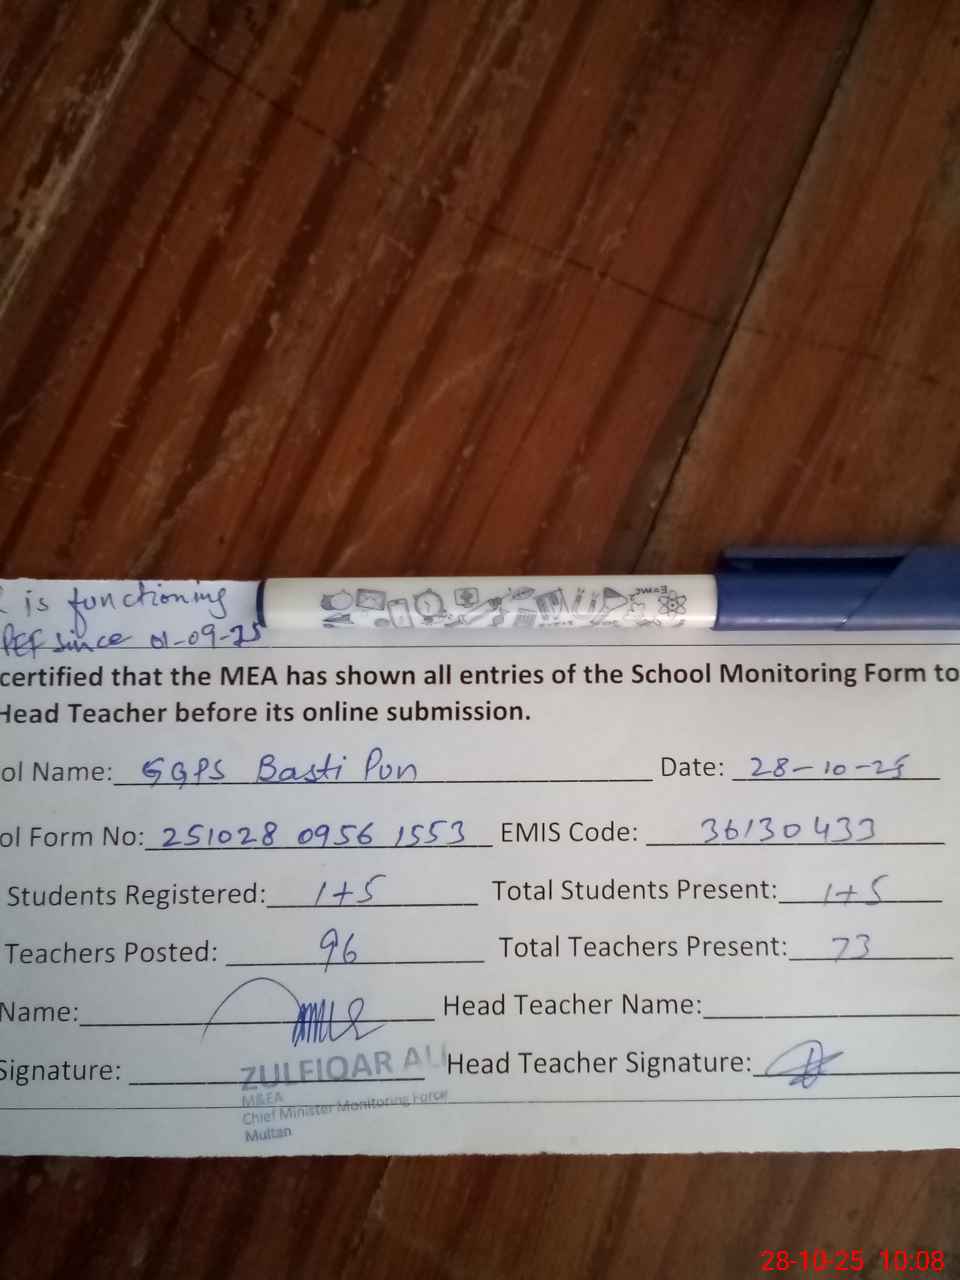 is functioning
PEF since 01-09-25
certified that the MEA has shown all entries of the School Monitoring Form to
Head Teacher before its online submission.
ol Name: GGPS Basti Pun Date: 28-10-25
ol Form No: 251028 0956 1553 EMIS Code: 36130433
Students Registered: 1+5 Total Students Present: 1+5
Teachers Posted: 96 Total Teachers Present: 73
Name: Head Teacher Name:
Signature: Head Teacher Signature:
ZULFIQAR ALI
M&EA
Chief Minister Monitoring Force
Multan
28-10-25 10:08